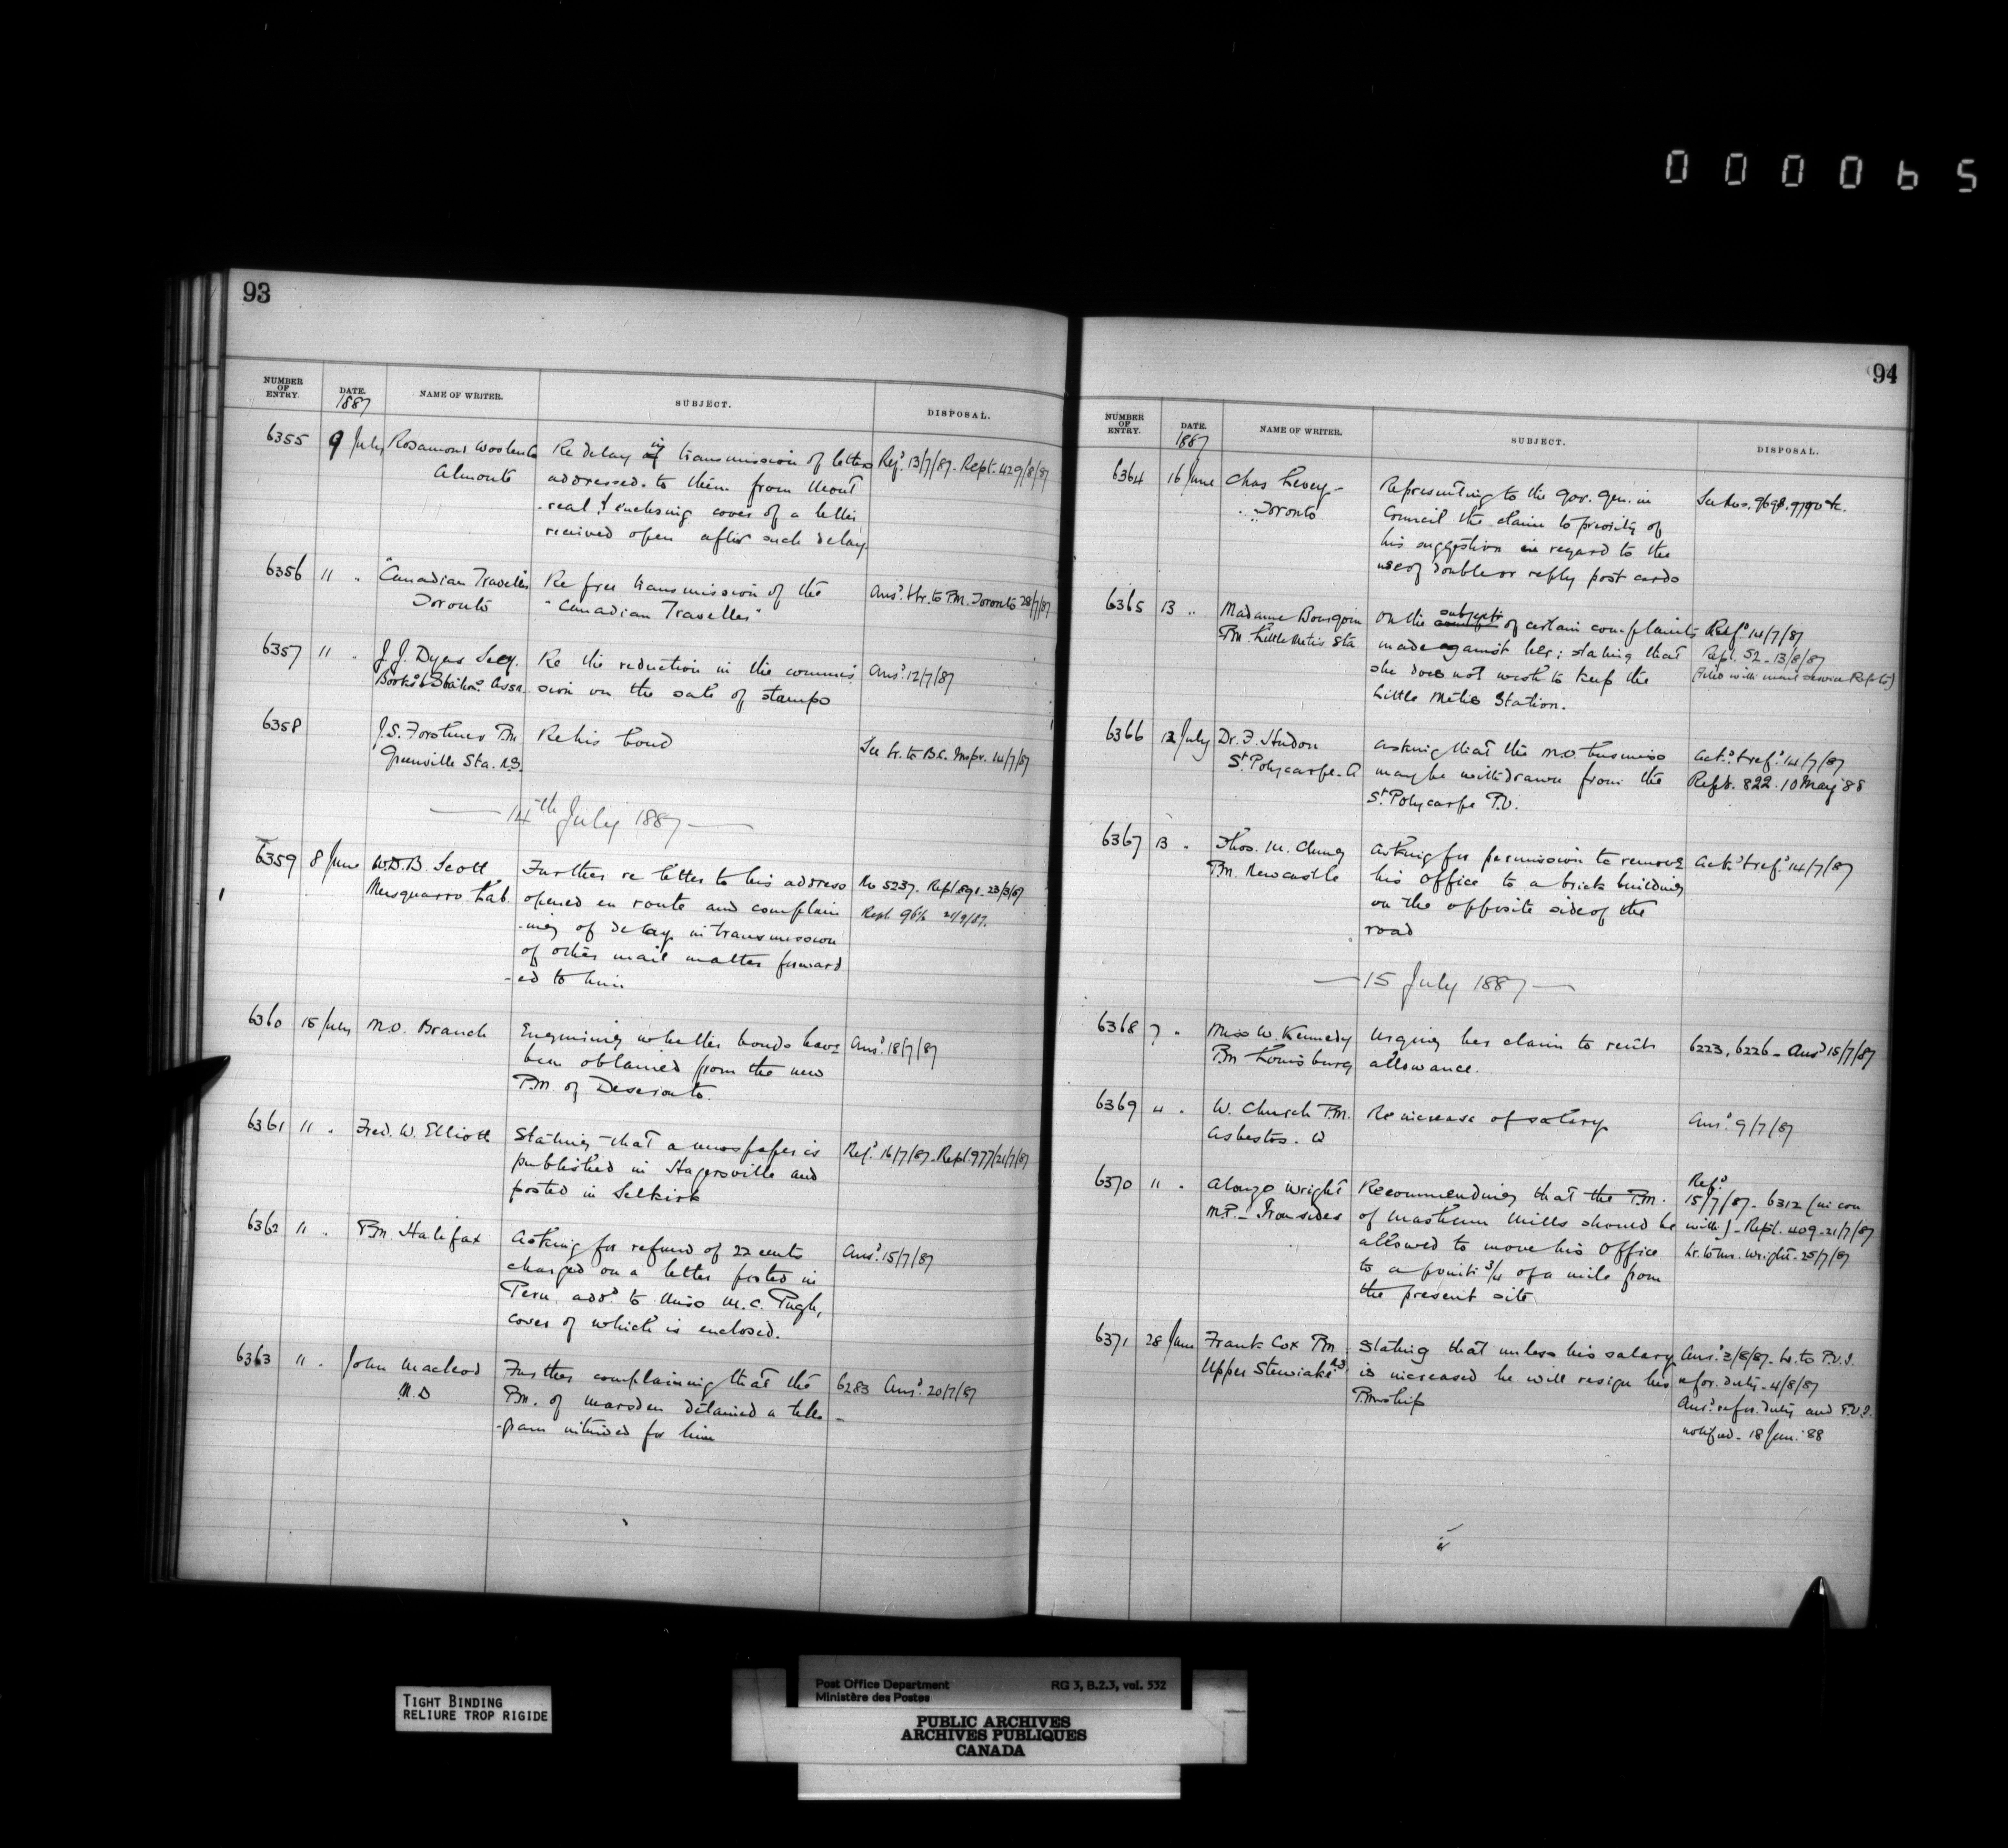 000065
93
NUMBER OF ENTRY. DATE. 1887 NAME OF WRITER. SUBJECT. DISPOSAL.
6355 9 July Rosamond Woolen Co Re delay in transmission of letters Ref.d 13/7/87. Rept. 429/8/87
Almonte addressed to them from Mont
real & enclosing cover of a letter
received open after such delay.
6356 " . "Canadian Traveller" Re free transmission of the Ans.d Lr. to P.M. Toronto 28/7/87
Toronto "Canadian Traveller"
6357 " . J. J. Dyas Secy. Re the reduction in the commis Ans.d 12/7/87
Books. & Station.s Assn. sion on the sale of stamps
6358 J. S. P.M. Re his bond See Lr. to B.C. Inspr. 14/7/87
Greenville Sta. N.S.
14th July 1887
6359 8 June W.D.B. Scott Further re letter to his address No 5237. Rept. 23/3/87
Musquarro Lab. opened en route and complain Rept. 964 21/9/87.
-ing of delay in transmission
of other mail matter forward
-ed to him
6360 15 July M.O. Branch Enquiring whether bonds have Ans.d 18/7/87
been obtained from the new
P.M. of Deseronto.
6361 " . Fred. W. Elliott Stating that a newspaper is Ref.d 16/7/87. Rept. 977/21/7/87
published in Hagersville and
posted in Selkirk
6362 " . P.M. Halifax Asking for refund of 22 cents Ans.d 15/7/87
charged on a letter posted in
Peru add.d to Miss M. C. Pugh,
cover of which is enclosed.
6363 " . John Macleod Further complaining that the 6283 Ans.d 20/7/87
M.D P.M. of Marsden detained a tele -
-gram intended for him
94
NUMBER OF ENTRY. DATE. 1887 NAME OF WRITER. SUBJECT. DISPOSAL.
6364 16 June Chas Levey - Representing to the Gov. Gen. in See Nos. 9698, 9790 &c.
Toronto Council the claim to priority of
his suggestion in regard to the
use of double or reply post cards
6365 13 " Madame Bourgoin On the subject of certain complaints Ref.d 14/7/87
P.M. Little Metis Sta made against her; stating that Rept. 52 - 13/8/87
she does not wish to keep the (Filed with mail service Repts)
Little Métis Station.
6366 12 July Dr. F. Hudon Asking that the M.O. business Ack.d & ref.d 14/7/87
St. Polycarpe. Q may be withdrawn from the Rept. 822. 10 May '88
St. Polycarpe P.O.
6367 13 . Thos. M. P.M. Newcastle Asking for permission to remove Ack.d & ref.d 14/7/87
his Office to a brick building
on the opposite side of the
road
15 July 1887
6368 7 " Miss W. Kennedy Urging her claim to rent 6223, 6226 - Ans.d 15/7/87
P.M. Louisburg allowance.
6369 " . W. Church P.M. Re increase of salary Ans.d 9/7/87
Asbestos. Q
6370 " . Alonzo Wright Recommending that the P.M. Ref.d 15/7/87 - 6312 (in con
M.P. - Ironsides of Mashum Mills should be with) - Rept. 409 - 21/7/87
allowed to move his Office Lr. to Mr. Wright - 25/7/87
to a point 3/4 of a mile from
the present site
6371 28 June Frank Cox P.M. Stating that unless his salary Ans.d 3/8/87 - Lr. to P.O.I.
Upper Stewiacke N.S. is increased he will resign his refor. duty - 4/8/87
P.M.ship Ans.d refor. duty and P.O.I.
notified - 18 Jan. '88
TIGHT BINDING
RELIURE TROP RIGIDE
Post Office Department RG 3, B.2.3, vol. 532
Ministère des Postes
PUBLIC ARCHIVES
ARCHIVES PUBLIQUES
CANADA